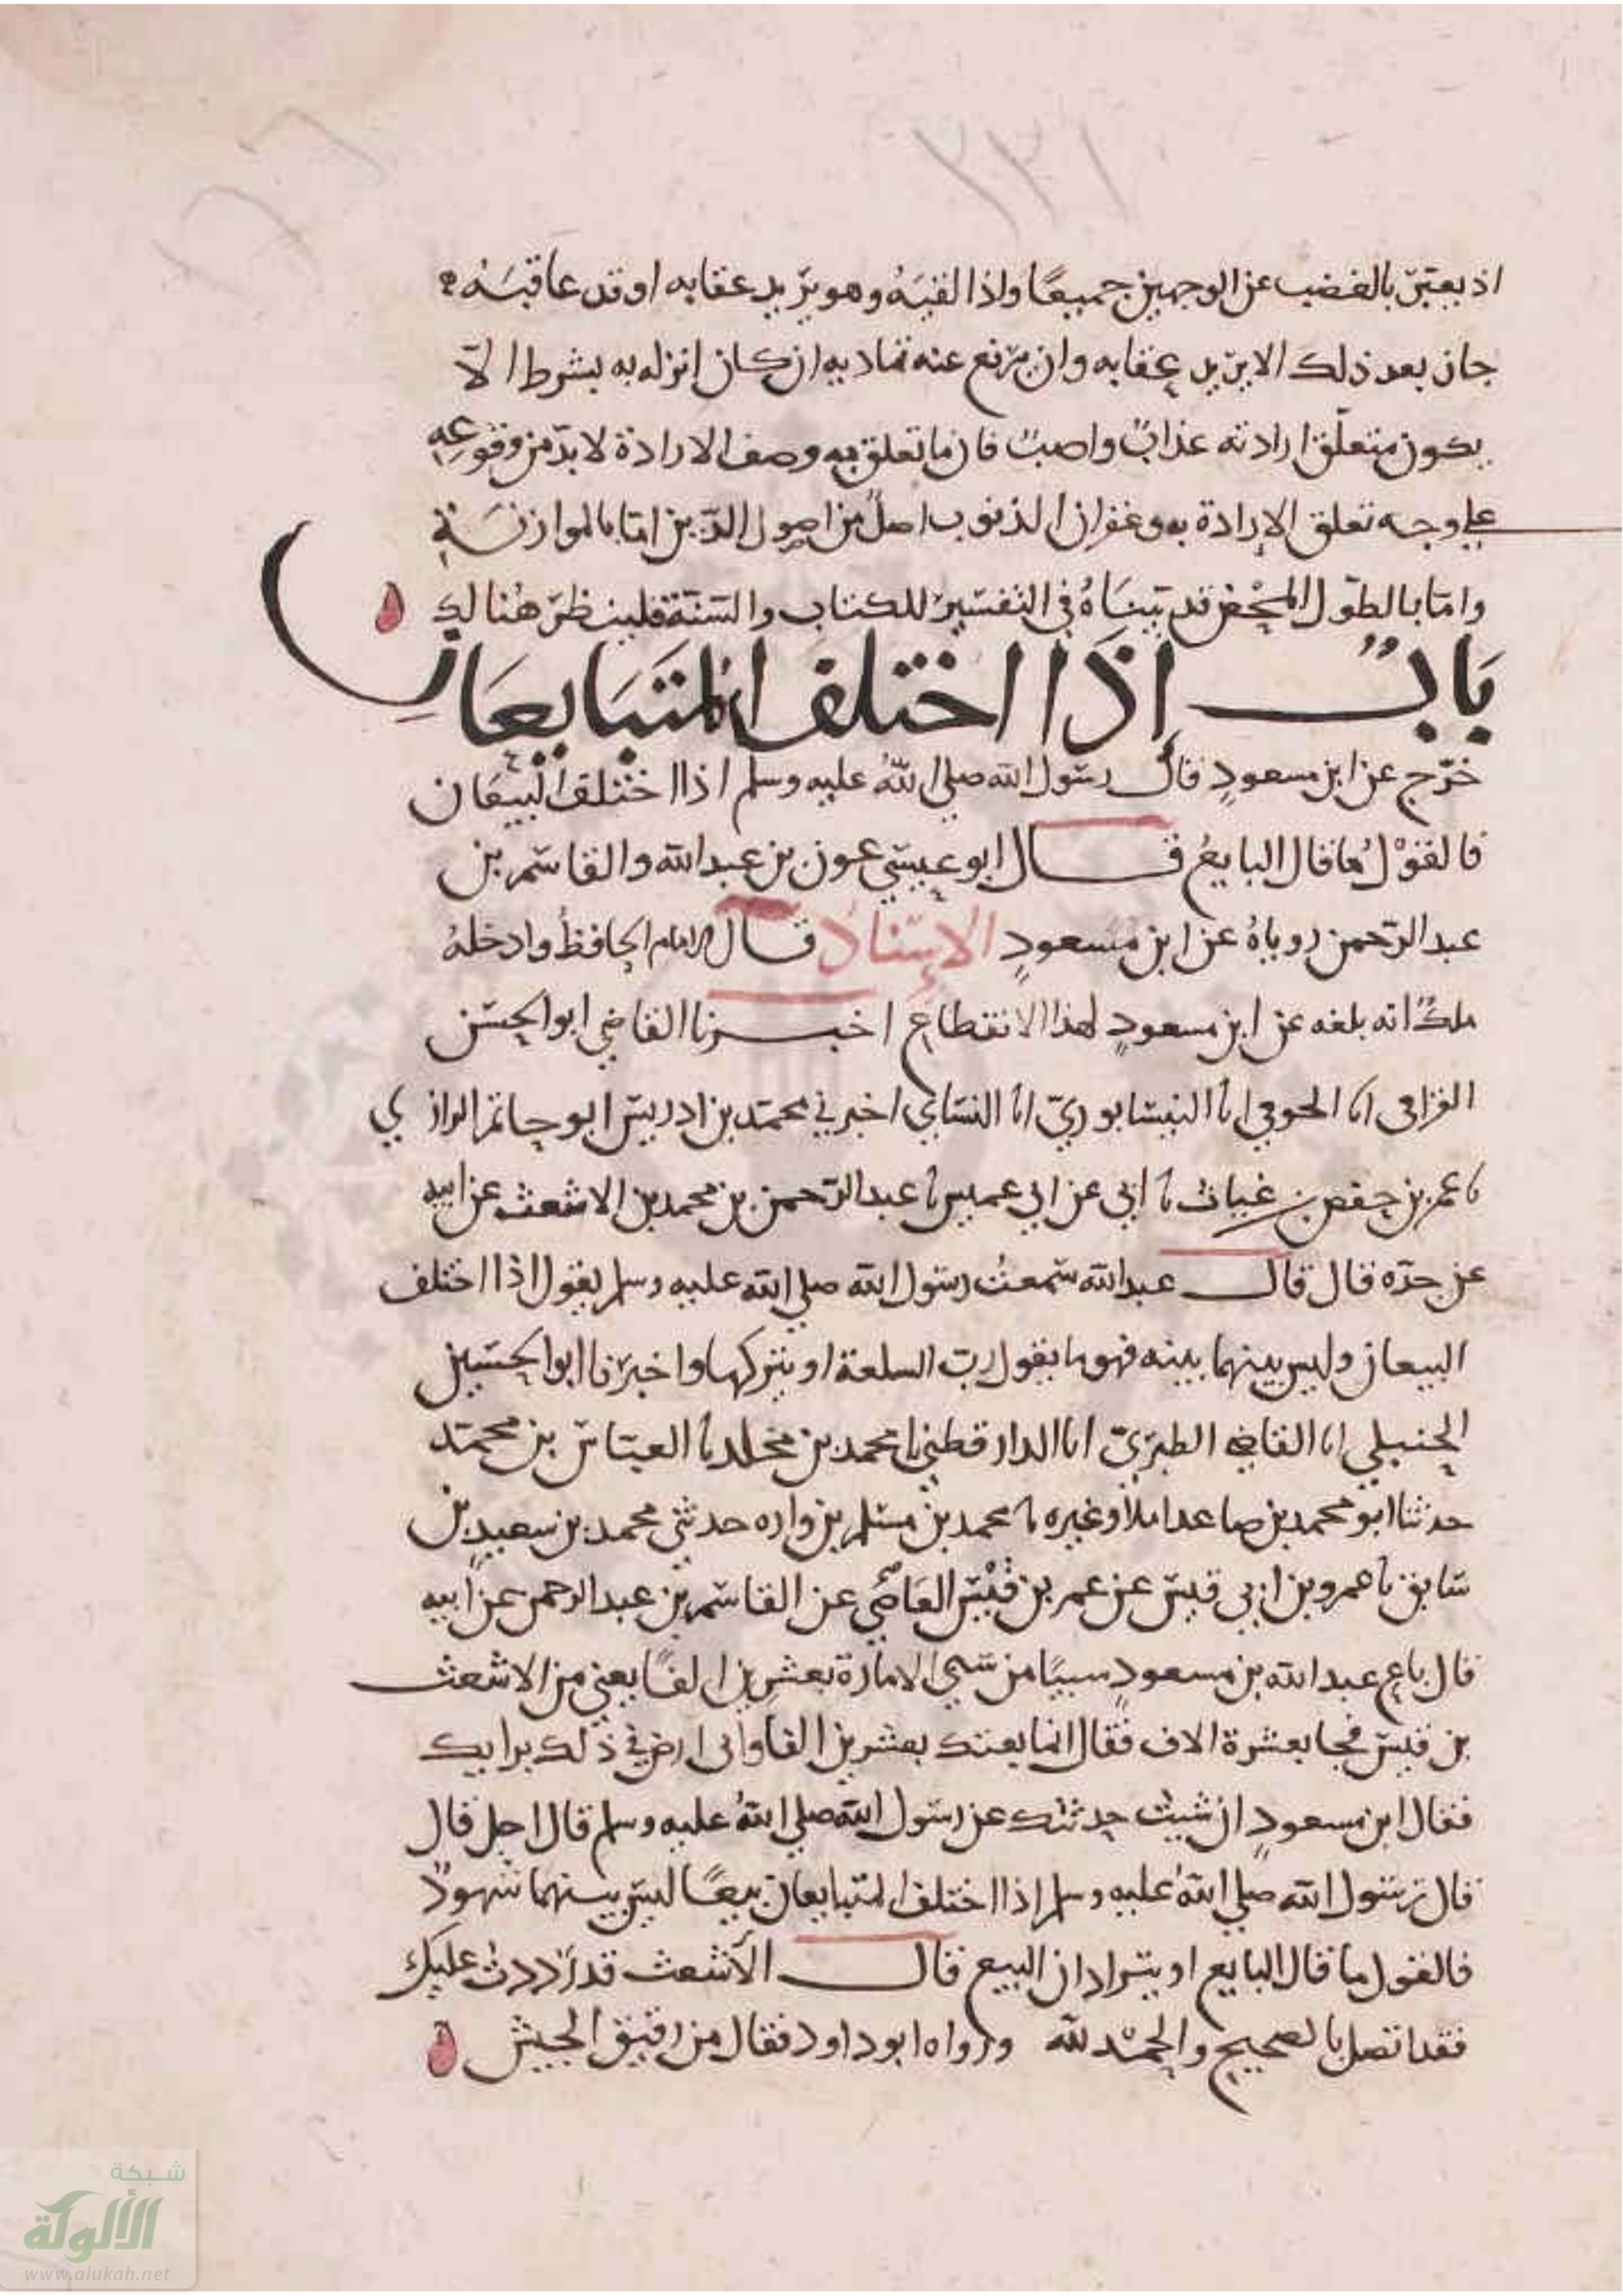 ١٣٢
اذ يعبّر بالغضب عن الوجهين جميعًا واذا لقيَهُ وهو يرّيد عقابه او قد عاقبَهُ
جاز بعد ذلك الا يرّيد عقابه وان يرّفع عنه تماديه ان كان انزله به بشرط الاّ
يكون متعلّق ارادته عذابٌ واصبٌ فان ما تعلق به وصف الارادة لا بدّ من وقوعِهِ
على وجه تعلق الإرادة به وغفران الذنوب اصلٌ من اصول الدّين امّا بالموازنَةِ
وامّا بالطّول المحْض قد بيّنَاهُ في التفسير للكتاب والسّنّة فلينظرْ هُنالك
بَابٌ إذَا اختلف المُتَبَايعَانِ
خرّج عن ابن مسعودٍ قال رسول الله صلى اللهُ عليه وسلم اذا اختلف البيّعَان
فالقوْلُ ما قال البايعُ قال ابو عيسى عون بن عبد الله والقاسم بن
عبد الرّحمن روياهُ عن ابن مسعودٍ الإسنادُ قال الامام الحافظُ وادخلهُ
ملكٌ انه بلغه عن ابن مسعودٍ لهذا الانقطاع اخبرنا القاضي ابو الحسَن
القرافي انا الحوفي انا النيسابوريّ انا النسَاي اخبرني محمّد بن ادريس ابو حاتم الرازي
نا عمر بن حفص بن غياث نا ابي عن ابي عميس نا عبد الرّحمن بن محمد بن الاشعث عن ابيه
عن جدّه قال قال عبد الله سمعتُ رسول الله صلى الله عليه وسلم يقول اذا اختلف
البيعان وليس بينهما بينه فهو ما يقول ربّ السلعة او يتركها واخبرَنا ابو الحسَين
الحنبلي انا القاضي الطبرَيّ انا الدارقطني نا محمد بن مخلد نا العبّاس بن محمّد
حدثنا ابو محمد بن صاعد املاً وغيره نا محمد بن مسلم بن واره حدثني محمد بن سعيدِ بن
سَابق نا عمرو بن ابي قيس عن عمر بن قيْس العَاصّي عن القاسم بن عبد الرحمن عن ابيه
قال باع عبد الله بن مسعودٍ سبيًا من سَبي الامارة بعشرين الفًا يعني من الاشعث
بن قيسٍ فجا بعشرة الاف فقال انما بعتك بعشرين الفا واني ارضى في ذلك برايك
فقال ابن مسعودٍ ان شيت حدثتك عن رسول الله صلى اللهُ عليه وسلم قال اجل قال
قال رسول الله صلى اللهُ عليه وسلم اذا اختلف المتبايعان بيعًا ليس بينهما شهودٌ
فالقول ما قال البايع او يترادان البيع قال الأشعث قد رَددتُ عليك
فقد اتصل بالصحيح والحمْد لله ورواه ابو داود فقال من رقيق الجيش
شبكة
الألوكة
www.alukah.net